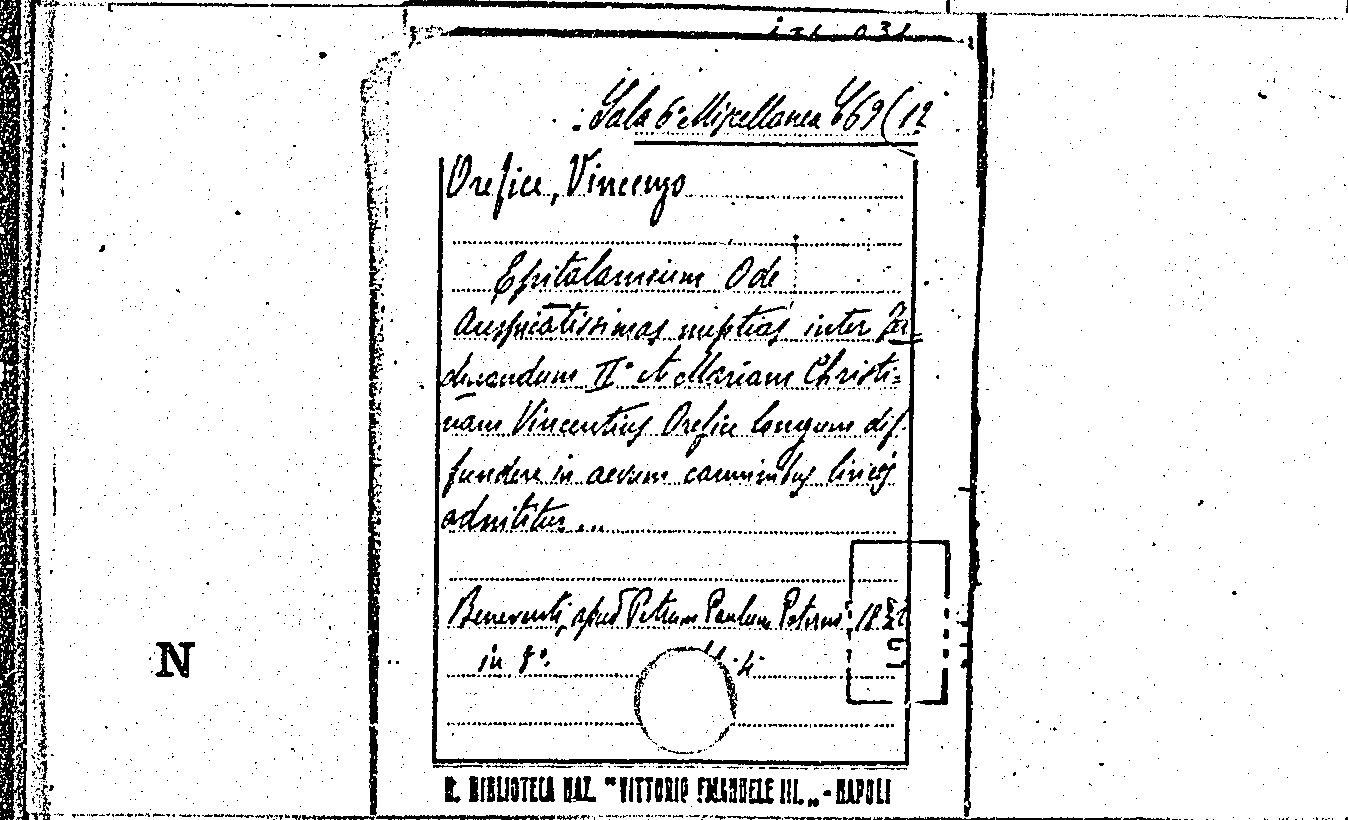 Sala 6ª Miscellanea C69(12
Orefice, Vincenzo
Epitalamium Ode
Auspicatissimas nuptias inter Fer-
dinandum II° et Mariam Christi=
nam Vincentius Orefice longum dif-
fundere in aevum carminibus
adnititur...
Beneventi, apud Petrum Paulum 18
in 8°.
N
R. BIBLIOTECA NAZ. "VITTORIO EMANUELE III.„ - NAPOLI